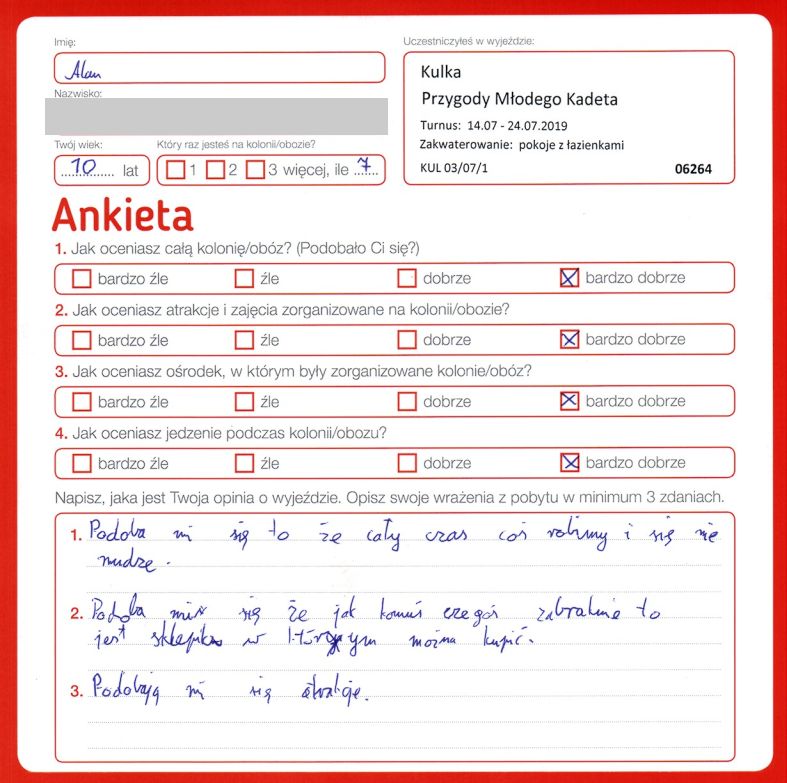 Imię:
Alan
Nazwisko:
Twój wiek:
10 lat
Który raz jesteś na kolonii/obozie?
1 2 3 więcej, ile 7
Uczestniczyłeś w wyjeździe:
Kulka
Przygody Młodego Kadeta
Turnus: 14.07 - 24.07.2019
Zakwaterowanie: pokoje z łazienkami
KUL 03/07/1 06264
Ankieta
1. Jak oceniasz całą kolonię/obóz? (Podobało Ci się?)
bardzo źle źle dobrze bardzo dobrze
2. Jak oceniasz atrakcje i zajęcia zorganizowane na kolonii/obozie?
bardzo źle źle dobrze bardzo dobrze
3. Jak oceniasz ośrodek, w którym były zorganizowane kolonie/obóz?
bardzo źle źle dobrze bardzo dobrze
4. Jak oceniasz jedzenie podczas kolonii/obozu?
bardzo źle źle dobrze bardzo dobrze
Napisz, jaka jest Twoja opinia o wyjeździe. Opisz swoje wrażenia z pobytu w minimum 3 zdaniach.
1. Podoba mi się to że cały czas coś robimy i się nie
nudzę.
2. Podoba się że jak komuś czegoś zabraknie to
jest sklepik w którym można kupić.
3. Podobają mi się atrakcje.